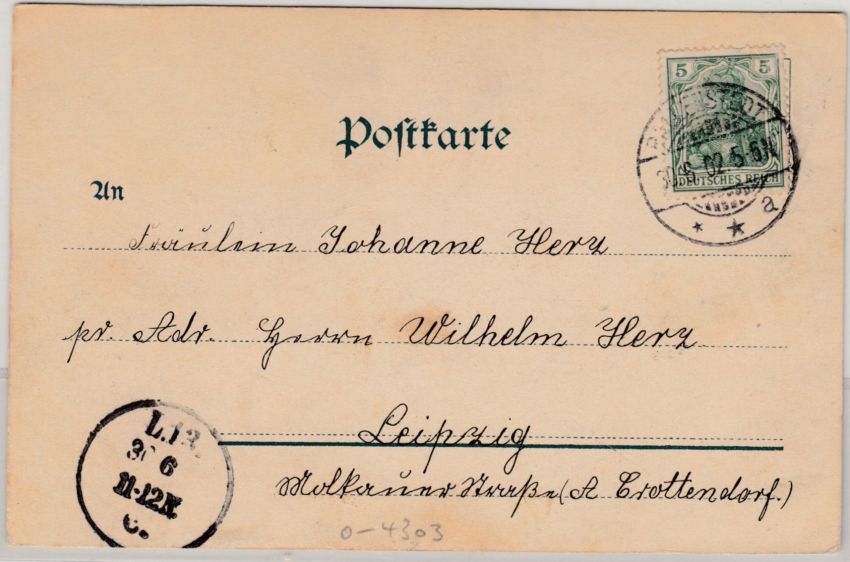 5 5
DEUTSCHES REICH
30.6.02.5-6N
a
Postkarte
An
Fräulein Johanne Herz
pr. Adr. Herrn Wilhelm Herz
Leipzig
Molkauer Straße (A Crottendorf.)
L.13.
30 6
11-12N.
0-4303